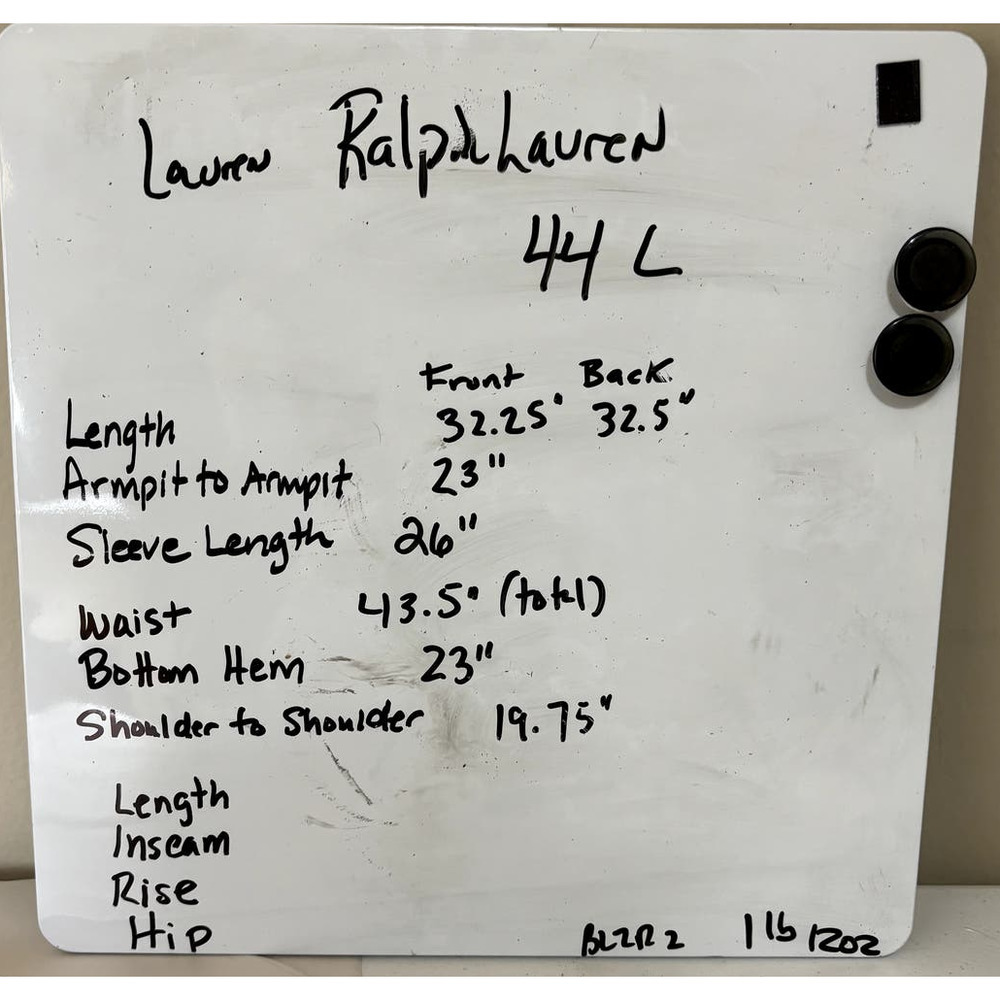 Lauren Ralph Lauren
44 L
Front Back
Length 32.25" 32.5"
Armpit to Armpit 23"
Sleeve Length 26"
Waist 43.5" (total)
Bottom Hem 23"
Shoulder to Shoulder 19.75"
Length
Inseam
Rise
Hip
BLZR 2 1 lb 12oz